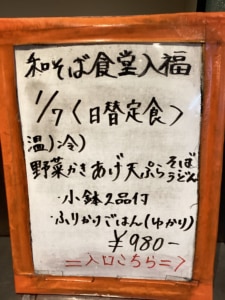 和そば食堂入福
1/7〈日替定食〉
温)冷)
野菜かきあげ天ぷらそばうどん
・小鉢2品付
・ふりかけごはん(ゆかり)
¥980-
=入口こちら=>